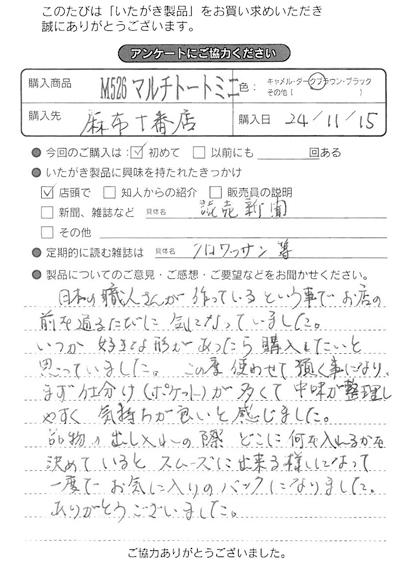 このたびは「いたがき製品」をお買い求めいただき
誠にありがとうございます。
アンケートにご協力ください
購入商品 M526 マルチトートミニ 色: キャメル・ダークブラウン・ブラック
その他( )
購入先 麻布十番店 購入日 24/11/15
● 今回のご購入は: ☑ 初めて □ 以前にも 回ある
● いたがき製品に興味を持たれたきっかけ
☑ 店頭で □ 知人からの紹介 □ 販売員の説明
□ 新聞、雑誌など 具体名 読売新聞
□ その他
● 定期的に読む雑誌は 具体名 クロワッサン 等
● 製品についてのご意見・ご感想・ご要望などをお聞かせください。
日本の職人さんが作っているという事でお店の
前を通るたびに気になっていました。
いつか好きな形があったら購入したいと
思っていました。この度使わせて頂く事になり、
まず仕分け(ポケット)が多くて中味が整理し
やすく気持ちが良いと感じました。
品物の出し入れの際どこに何を入れるかを
決めているとスムーズに出来る様になって
一度でお気に入りのバックになりました。
ありがとうございました。
ご協力ありがとうございました。